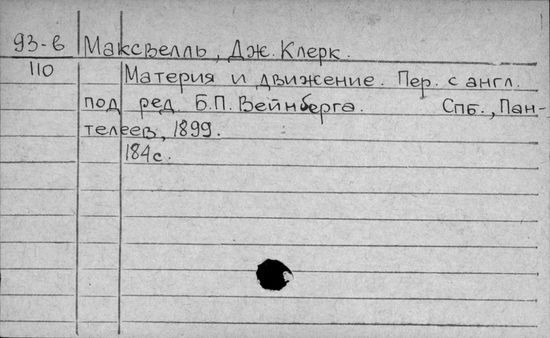 93-в Максвелль, Дж. Клерк.
110 Материя и движение. Пер. с англ.
под ред. Б.П. Вейнберга. Спб., Пан-
телеев, 1899.
184с.